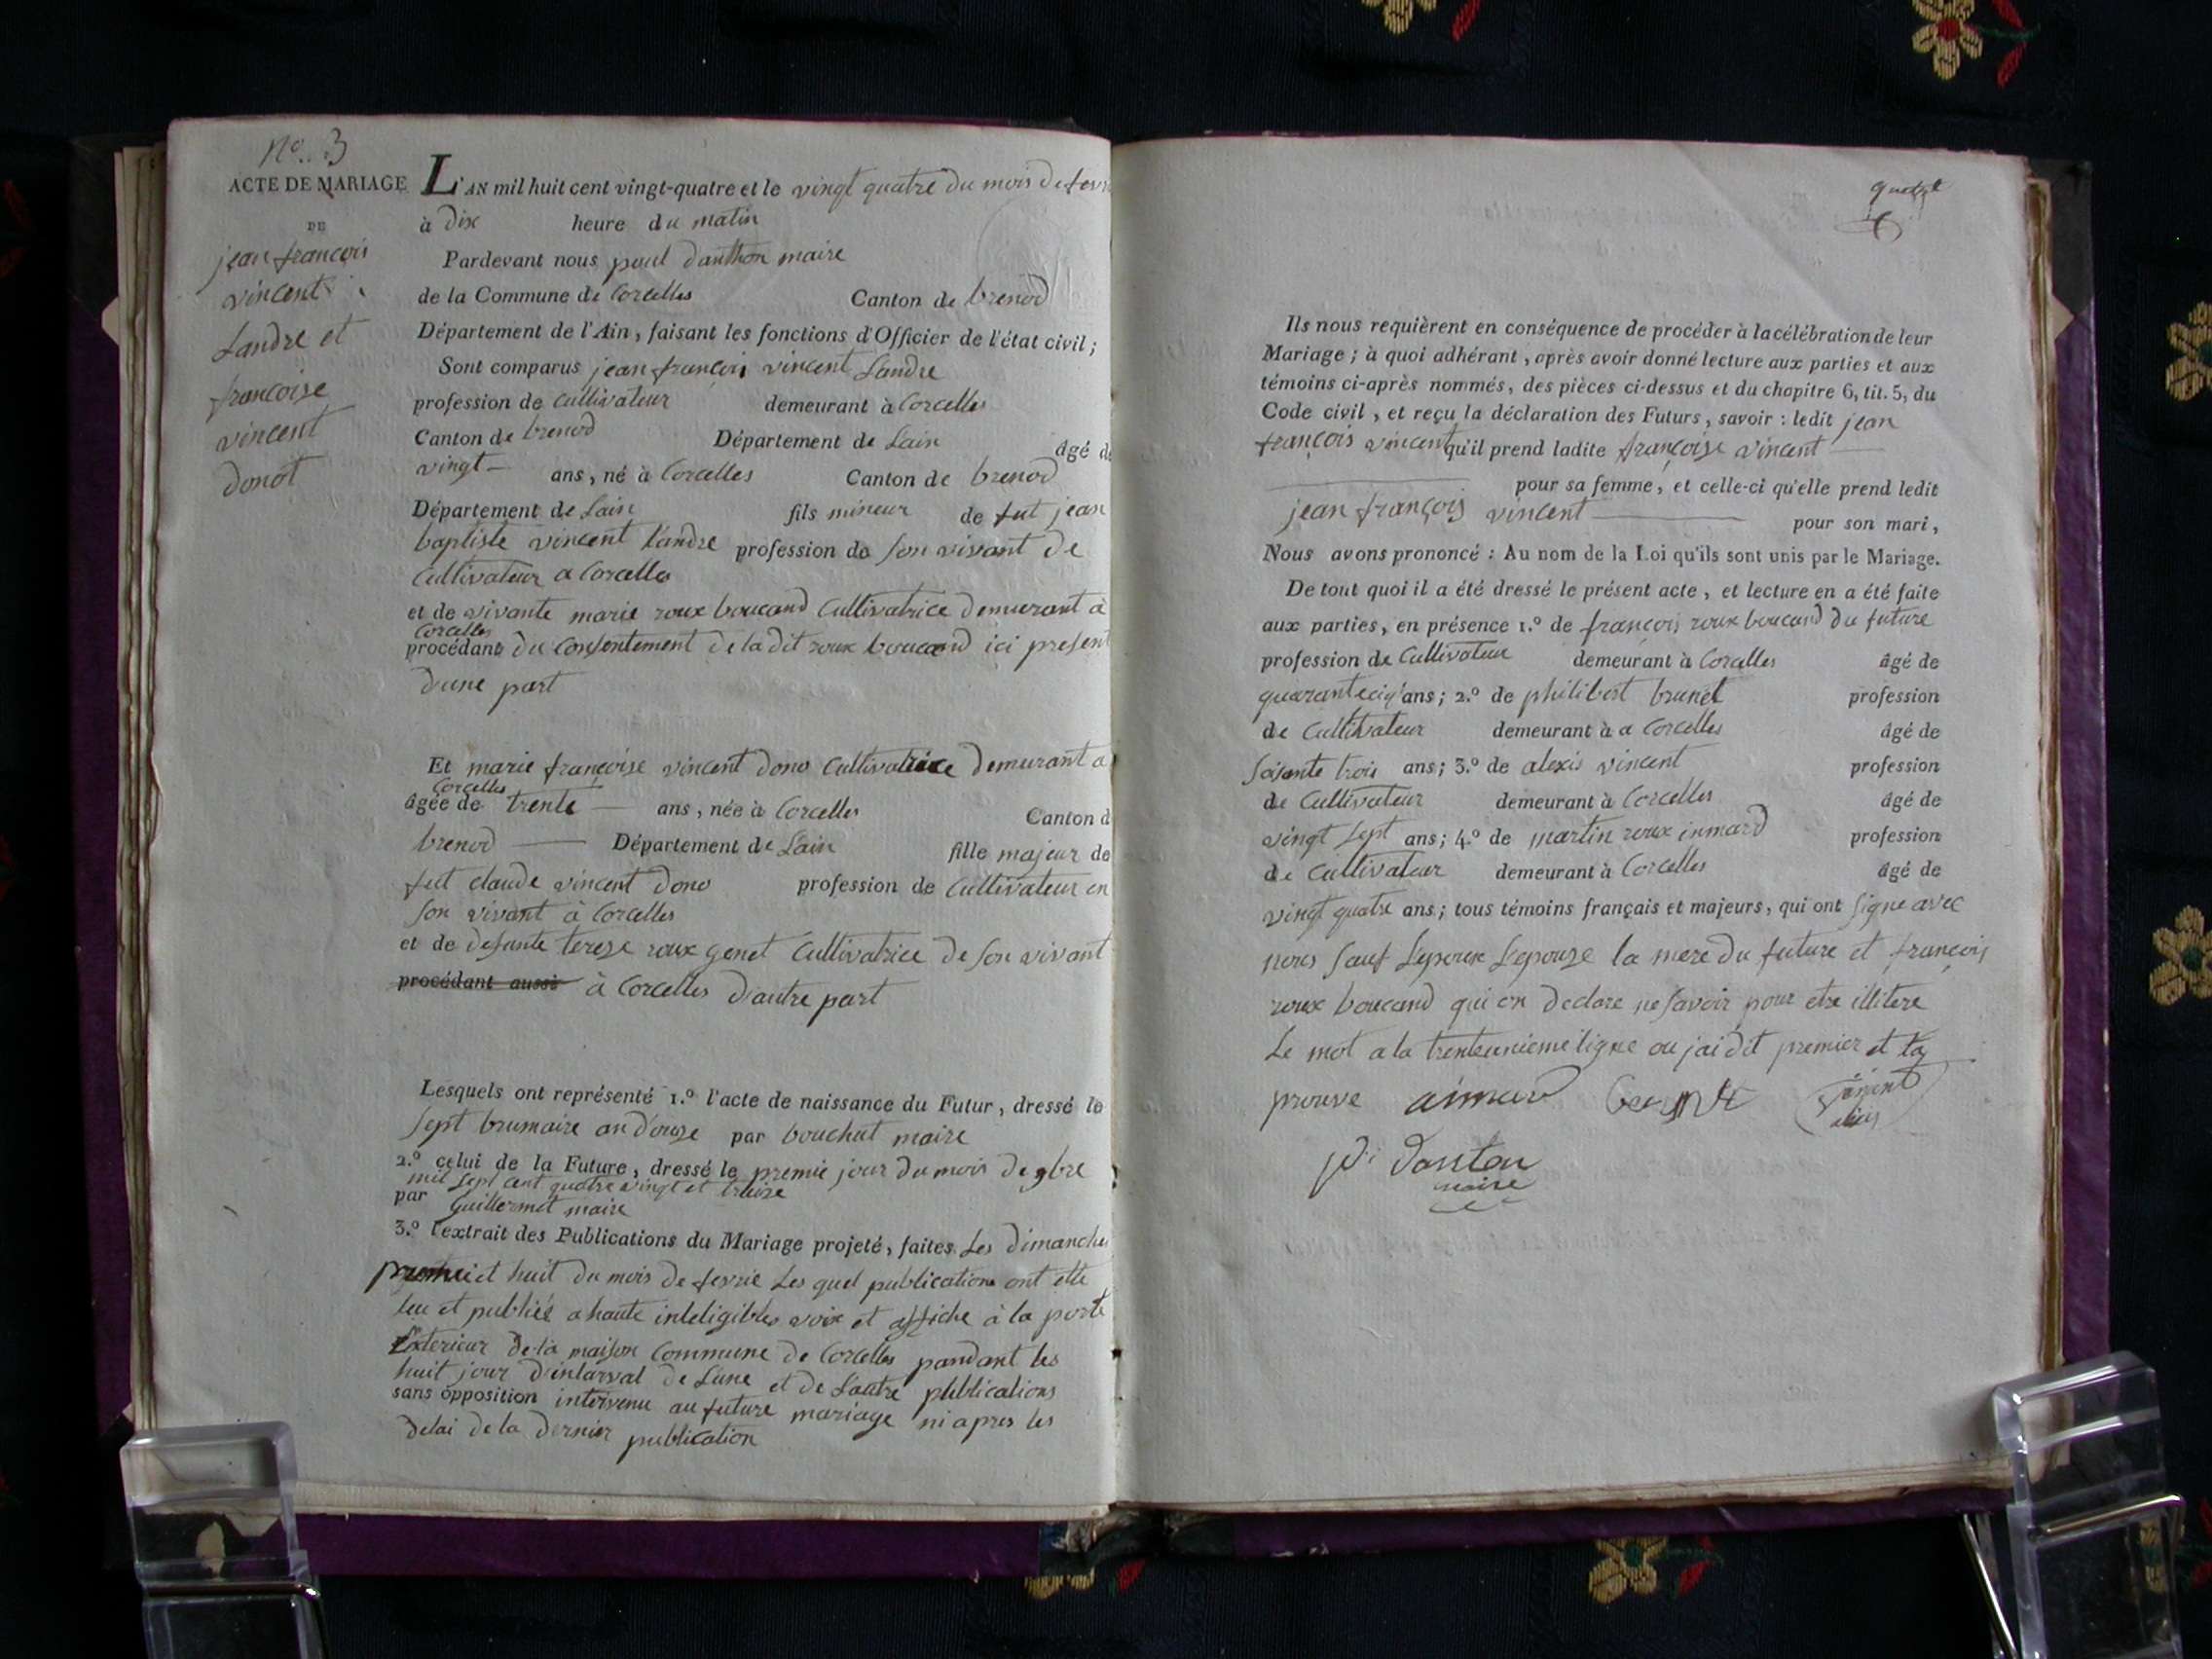 N.º 3
ACTE DE MARIAGE
DE
jean françois
vincent
Landre et
françoise
vincent
donot
L'AN mil huit cent vingt-quatre et le vingt quatre du mois de fevri
à dix heure du matin
Pardevant nous paul danthon maire
de la Commune de Corcelles Canton de brenod
Département de l'Ain, faisant les fonctions d'Officier de l'état civil;
Sont comparus jean françois vincent Landre
profession de cultivateur demeurant à Corcelles
Canton de brenod Département de Lain âgé de
vingt ans, né à Corcelles Canton de brenod
Département de Lain fils mineur de fut jean
baptiste vincent landre profession de son vivant de
Cultivateur a Corcelles
et de vivante marie roux boucand Cultivatrice demeurant à
Corcelles
procédant du Consentement de la dit roux boucand ici present
dune part
Et marie françoise vincent dono Cultivatrice demurant a
Corcelles
âgée de trente ans, née à Corcelles Canton d
brenod Département de Lain fille majeur de
fut claude vincent dono profession de Cultivateur en
son vivant à Corcelles
et de defunte terese roux genet Cultivatrice de son vivant
procédant aussi à Corcelles d'autre part
Lesquels ont représenté 1.º l'acte de naissance du Futur, dressé le
sept brumaire an d'ouze par bouchut maire
2.º celui de la Future, dressé le premie jour du mois de 9bre
mil sept cent quatre vingt et treize
par Guillermet maire
3.º l'extrait des Publications du Mariage projeté, faites Les dimanche
premie et huit du mois de fevrie Les quel publications ont ette
leu et publiée a haute inteligibles voix et affiche à la porte
Exterieur de la maison Commune de Corcelles pandant les
huit jour d'intarval de Lune et de Lautre publications
sans opposition intervenu au future mariage ni apres les
delai de la dernier publication
Ils nous requièrent en conséquence de procéder à la célébration de leur
Mariage; à quoi adhérant, après avoir donné lecture aux parties et aux
témoins ci-après nommés, des pièces ci-dessus et du chapitre 6, tit. 5, du
Code civil, et reçu la déclaration des Futurs, savoir: ledit jean
françois vincent qu'il prend ladite françoise vincent
pour sa femme, et celle-ci qu'elle prend ledit
jean françois vincent pour son mari,
Nous avons prononcé: Au nom de la Loi qu'ils sont unis par le Mariage.
De tout quoi il a été dressé le présent acte, et lecture en a été faite
aux parties, en présence 1.º de françois roux boucand du future
profession de Cultivateur demeurant à Corcelles âgé de
quarante ciq ans; 2.º de philibert brunet profession
de Cultivateur demeurant à a Corcelles âgé de
soisante trois ans; 3.º de alexis vincent profession
de Cultivateur demeurant à Corcelles âgé de
vingt sept ans; 4.º de martin roux inmard profession
de Cultivateur demeurant à Corcelles âgé de
vingt quatre ans; tous témoins français et majeurs, qui ont signe avec
nous sauf Lepoux Lepouze la mere du future et françois
roux boucand qui on declare ne savoir pour etre illitere
Le mot a la trenteunieme ligne ou jai dit premier et
prouve
P. Dantou
maire